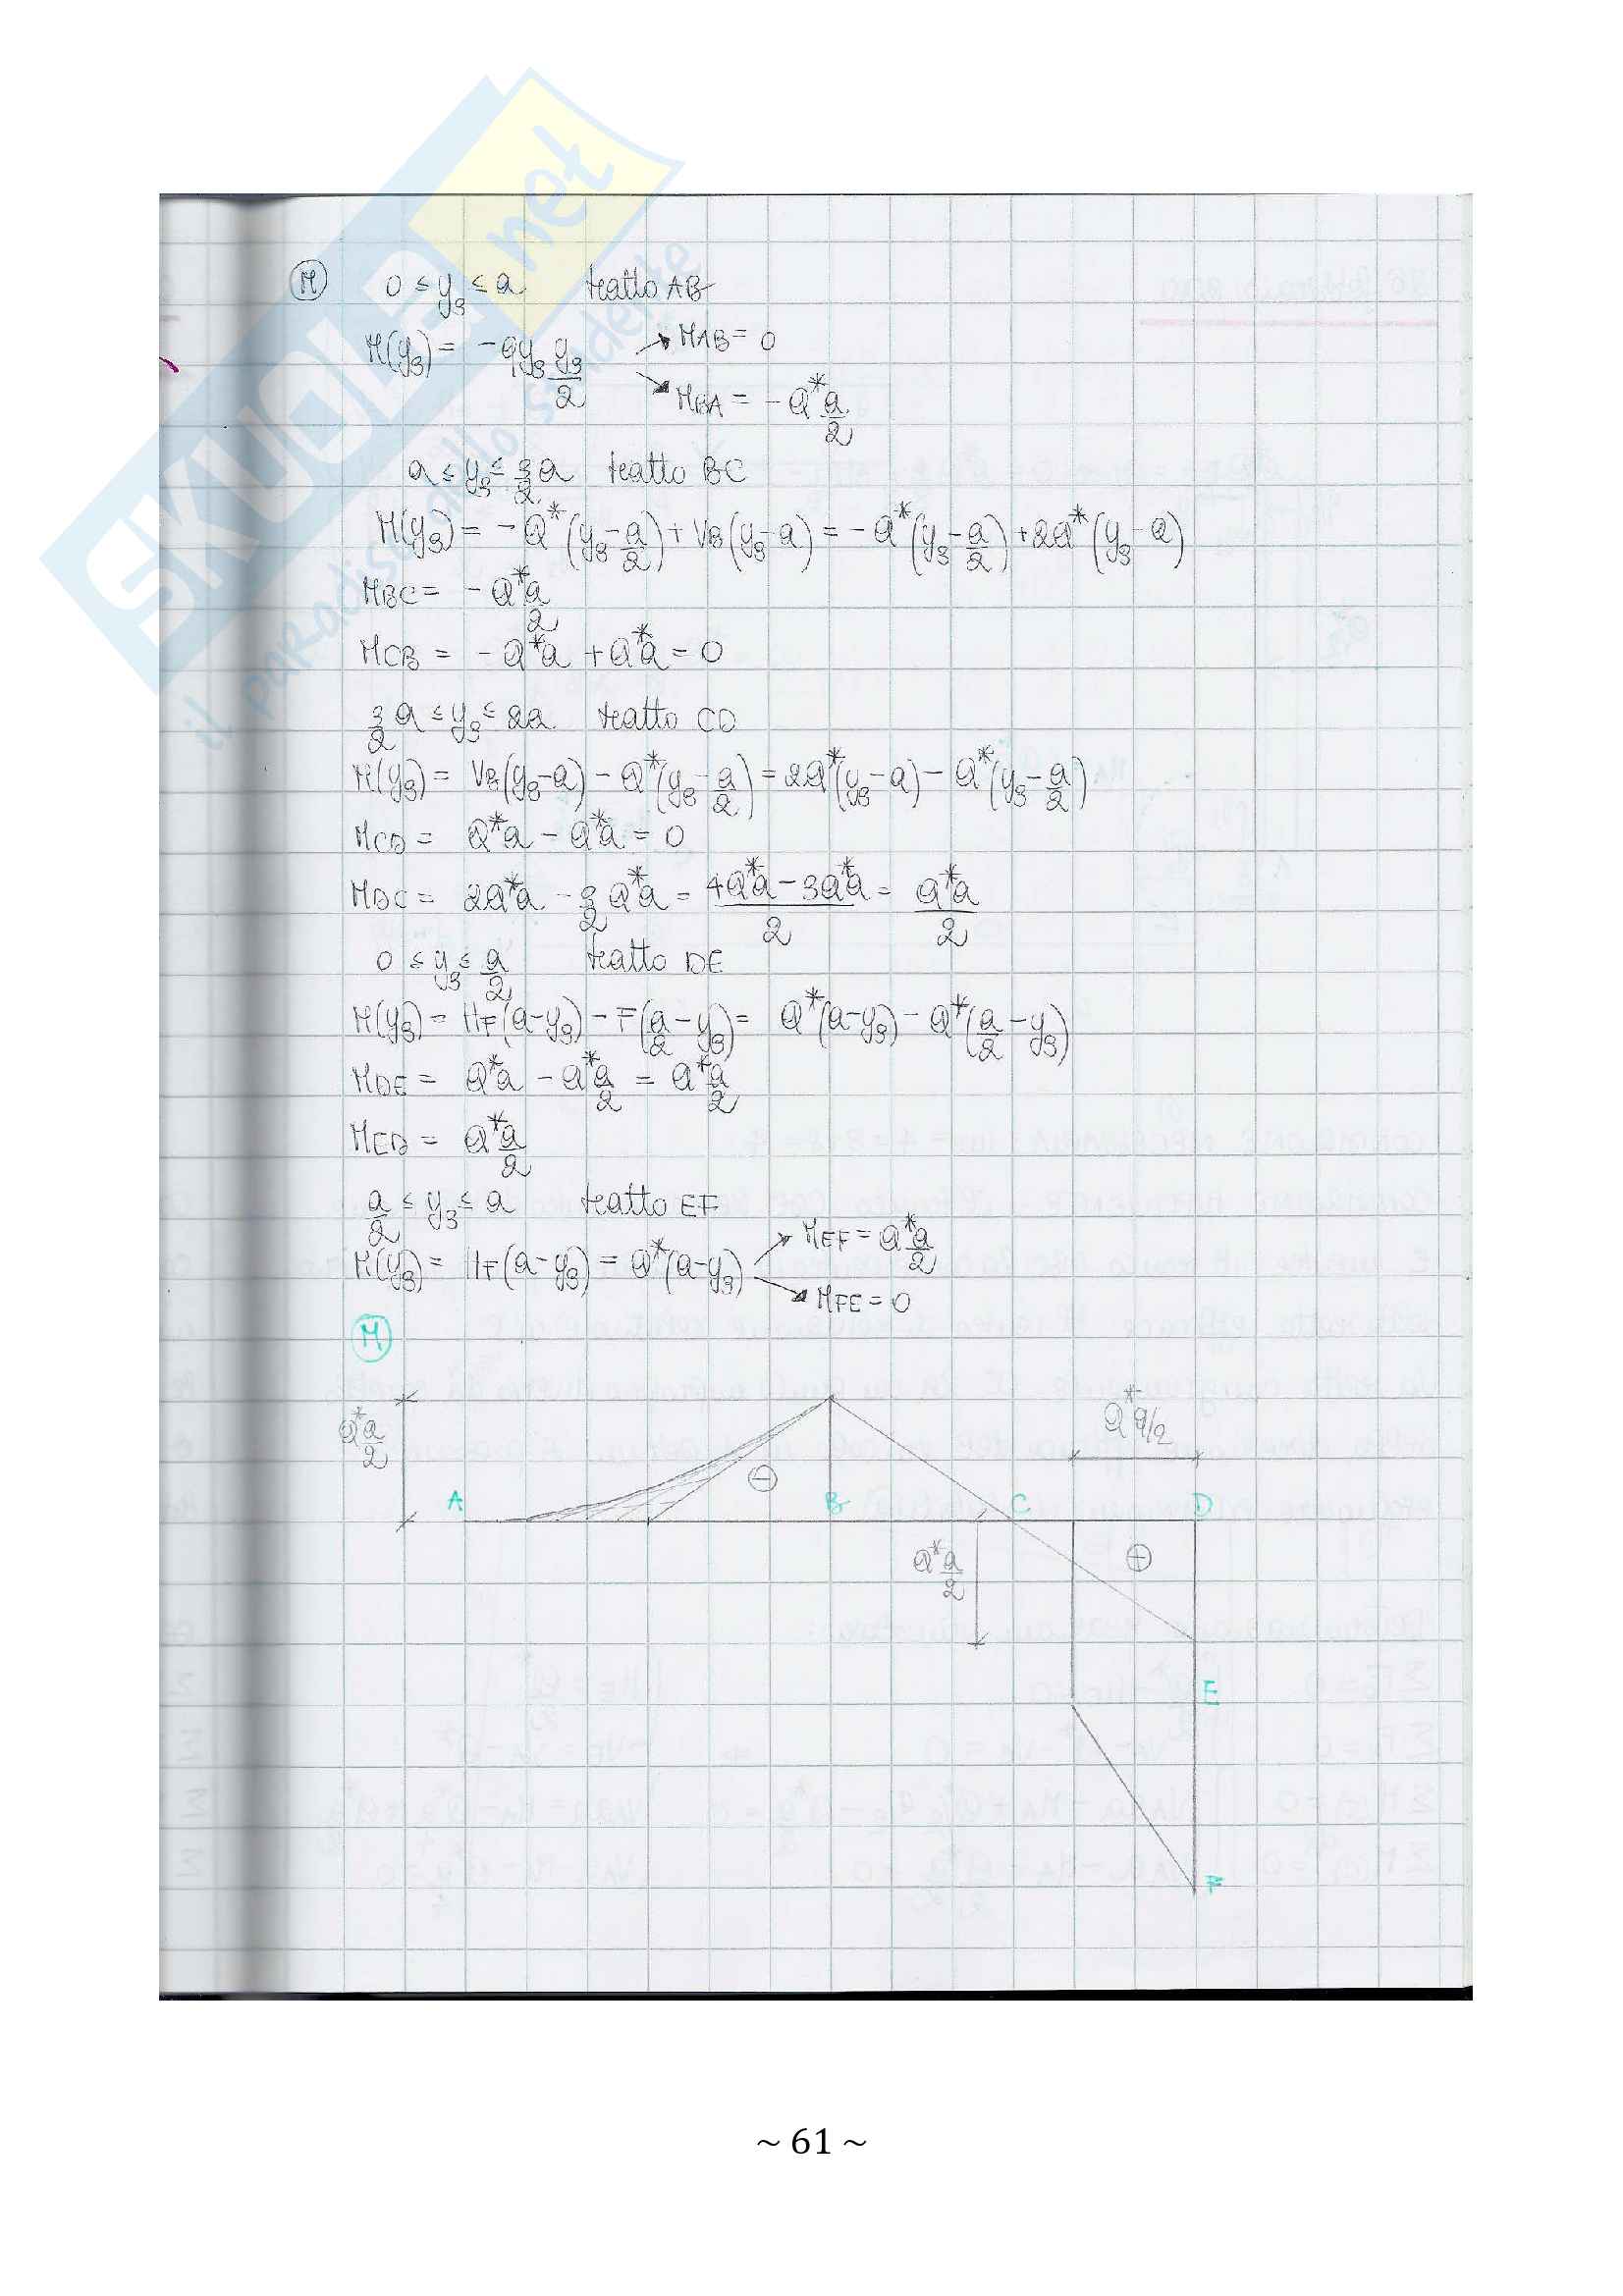 SKUOLA.net
il paradiso dello studente
M 0 ≤ y₃ ≤ a tratto AB
M(y₃) = -qy₃ y₃/2
MAB = 0
MBA = -Q* a/2
a ≤ y₃ ≤ 3/2 a tratto BC
M(y₃) = -Q*(y₃-a/2) + VB(y₃-a) = -Q*(y₃-a/2) + 2Q*(y₃-a)
MBC = -Q* a/2
MCB = -Q*a + Q*a = 0
3/2 a ≤ y₃ ≤ 2a tratto CD
M(y₃) = VB(y₃-a) - Q*(y₃-a/2) = 2Q*(y₃-a) - Q*(y₃-a/2)
MCD = Q*a - Q*a = 0
MDC = 2Q*a - 3/2 Q*a = (4Q*a - 3Q*a)/2 = Q*a/2
0 ≤ y₃ ≤ a/2 tratto DE
M(y₃) = HF(a-y₃) - F(a/2-y₃) = Q*(a-y₃) - Q*(a/2-y₃)
MDE = Q*a - Q* a/2 = Q* a/2
MED = Q* a/2
a/2 ≤ y₃ ≤ a tratto EF
M(y₃) = HF(a-y₃) = Q*(a-y₃)
MEF = Q* a/2
MFE = 0
M
Q* a/2
Q* a/2
A
⊖
B
C
D
Q* a/2
⊕
E
F
~ 61 ~